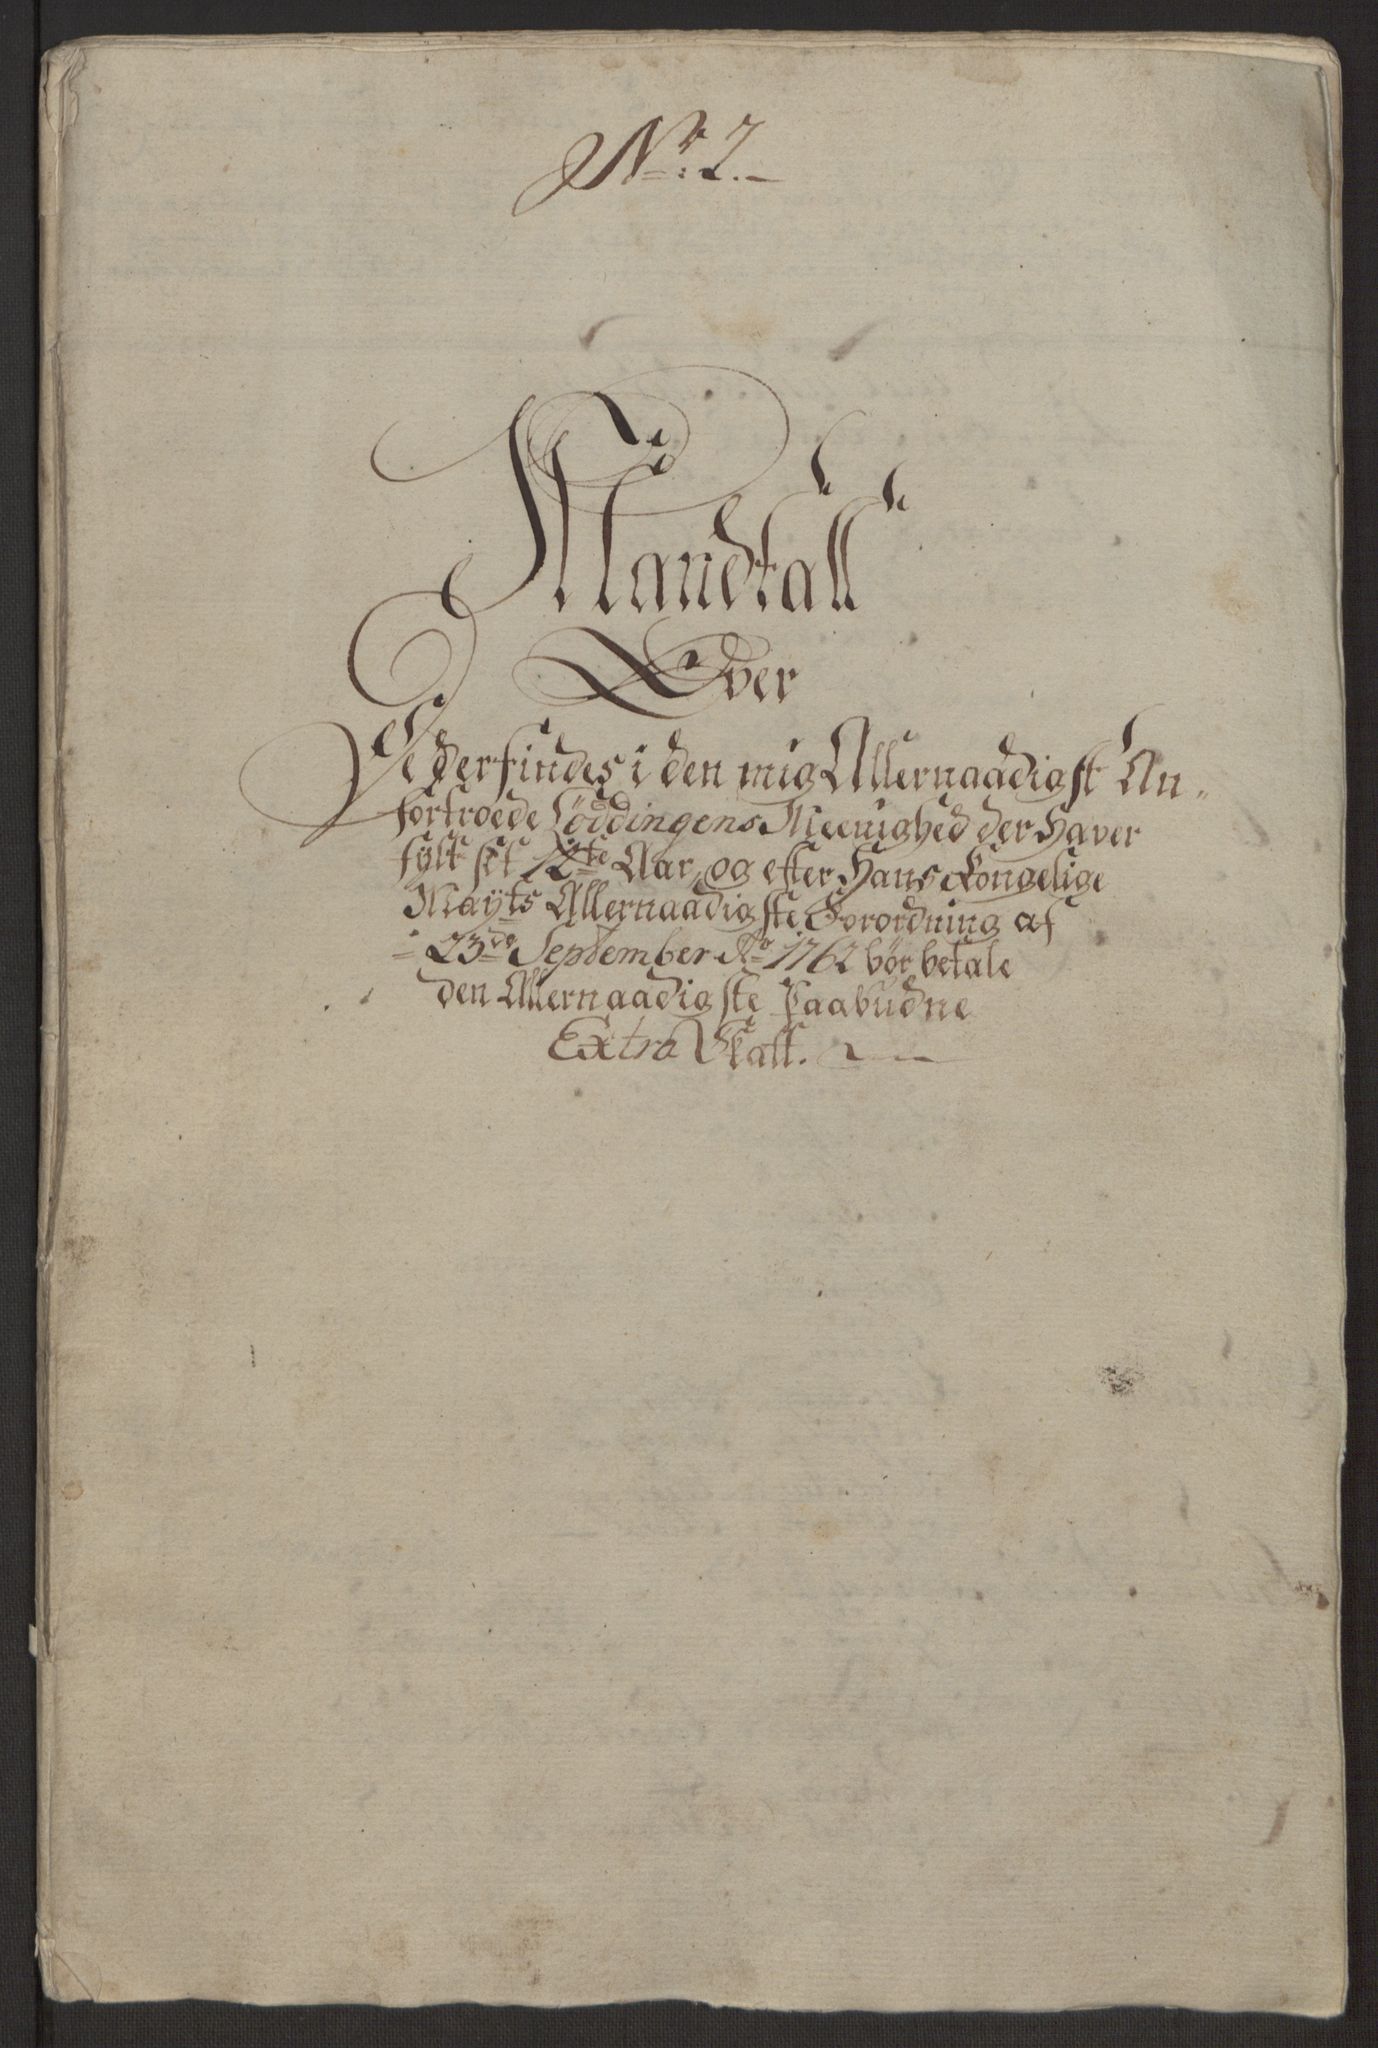 No: 2.
Mandtall
Over
De der findes i den mig Allernaadigst An-
fortroede Löddingens Meenighed der Haver
fylt sit 12te Aar, og efter Hans Kongelige
Mayts Allernaadigste Forordning af
23de September Ao 1762 bör betale
den Allernaadigste Paabudne
Extra Skatt.